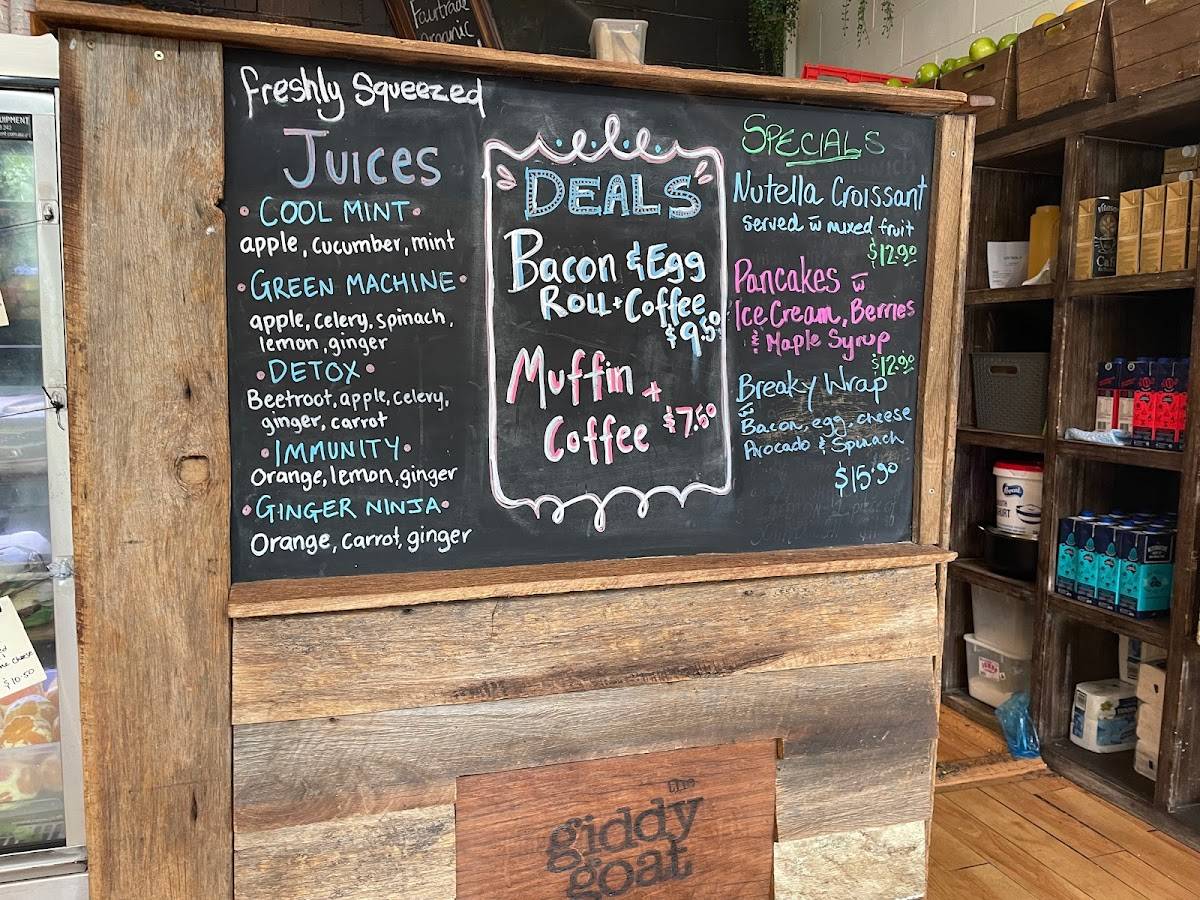 Fairtrade
Organic
Freshly Squeezed
JUICES
COOL MINT
apple, cucumber, mint
GREEN MACHINE
apple, celery, spinach,
lemon, ginger
DETOX
Beetroot, apple, celery,
ginger, carrot
IMMUNITY
Orange, lemon, ginger
GINGER NINJA
Orange, carrot, ginger
DEALS
Bacon & Egg
Roll + Coffee
$9.50
Muffin +
Coffee $7.50
SPECIALS
Nutella Croissant
served w mixed fruit
$12.90
PANCAKES w
ICE CREAM, BERRIES
& MAPLE SYRUP
$12.90
BREAKY WRAP
w
Bacon, egg, cheese
Avocado & Spinach
$15.90
the
giddy
goat
$10.50